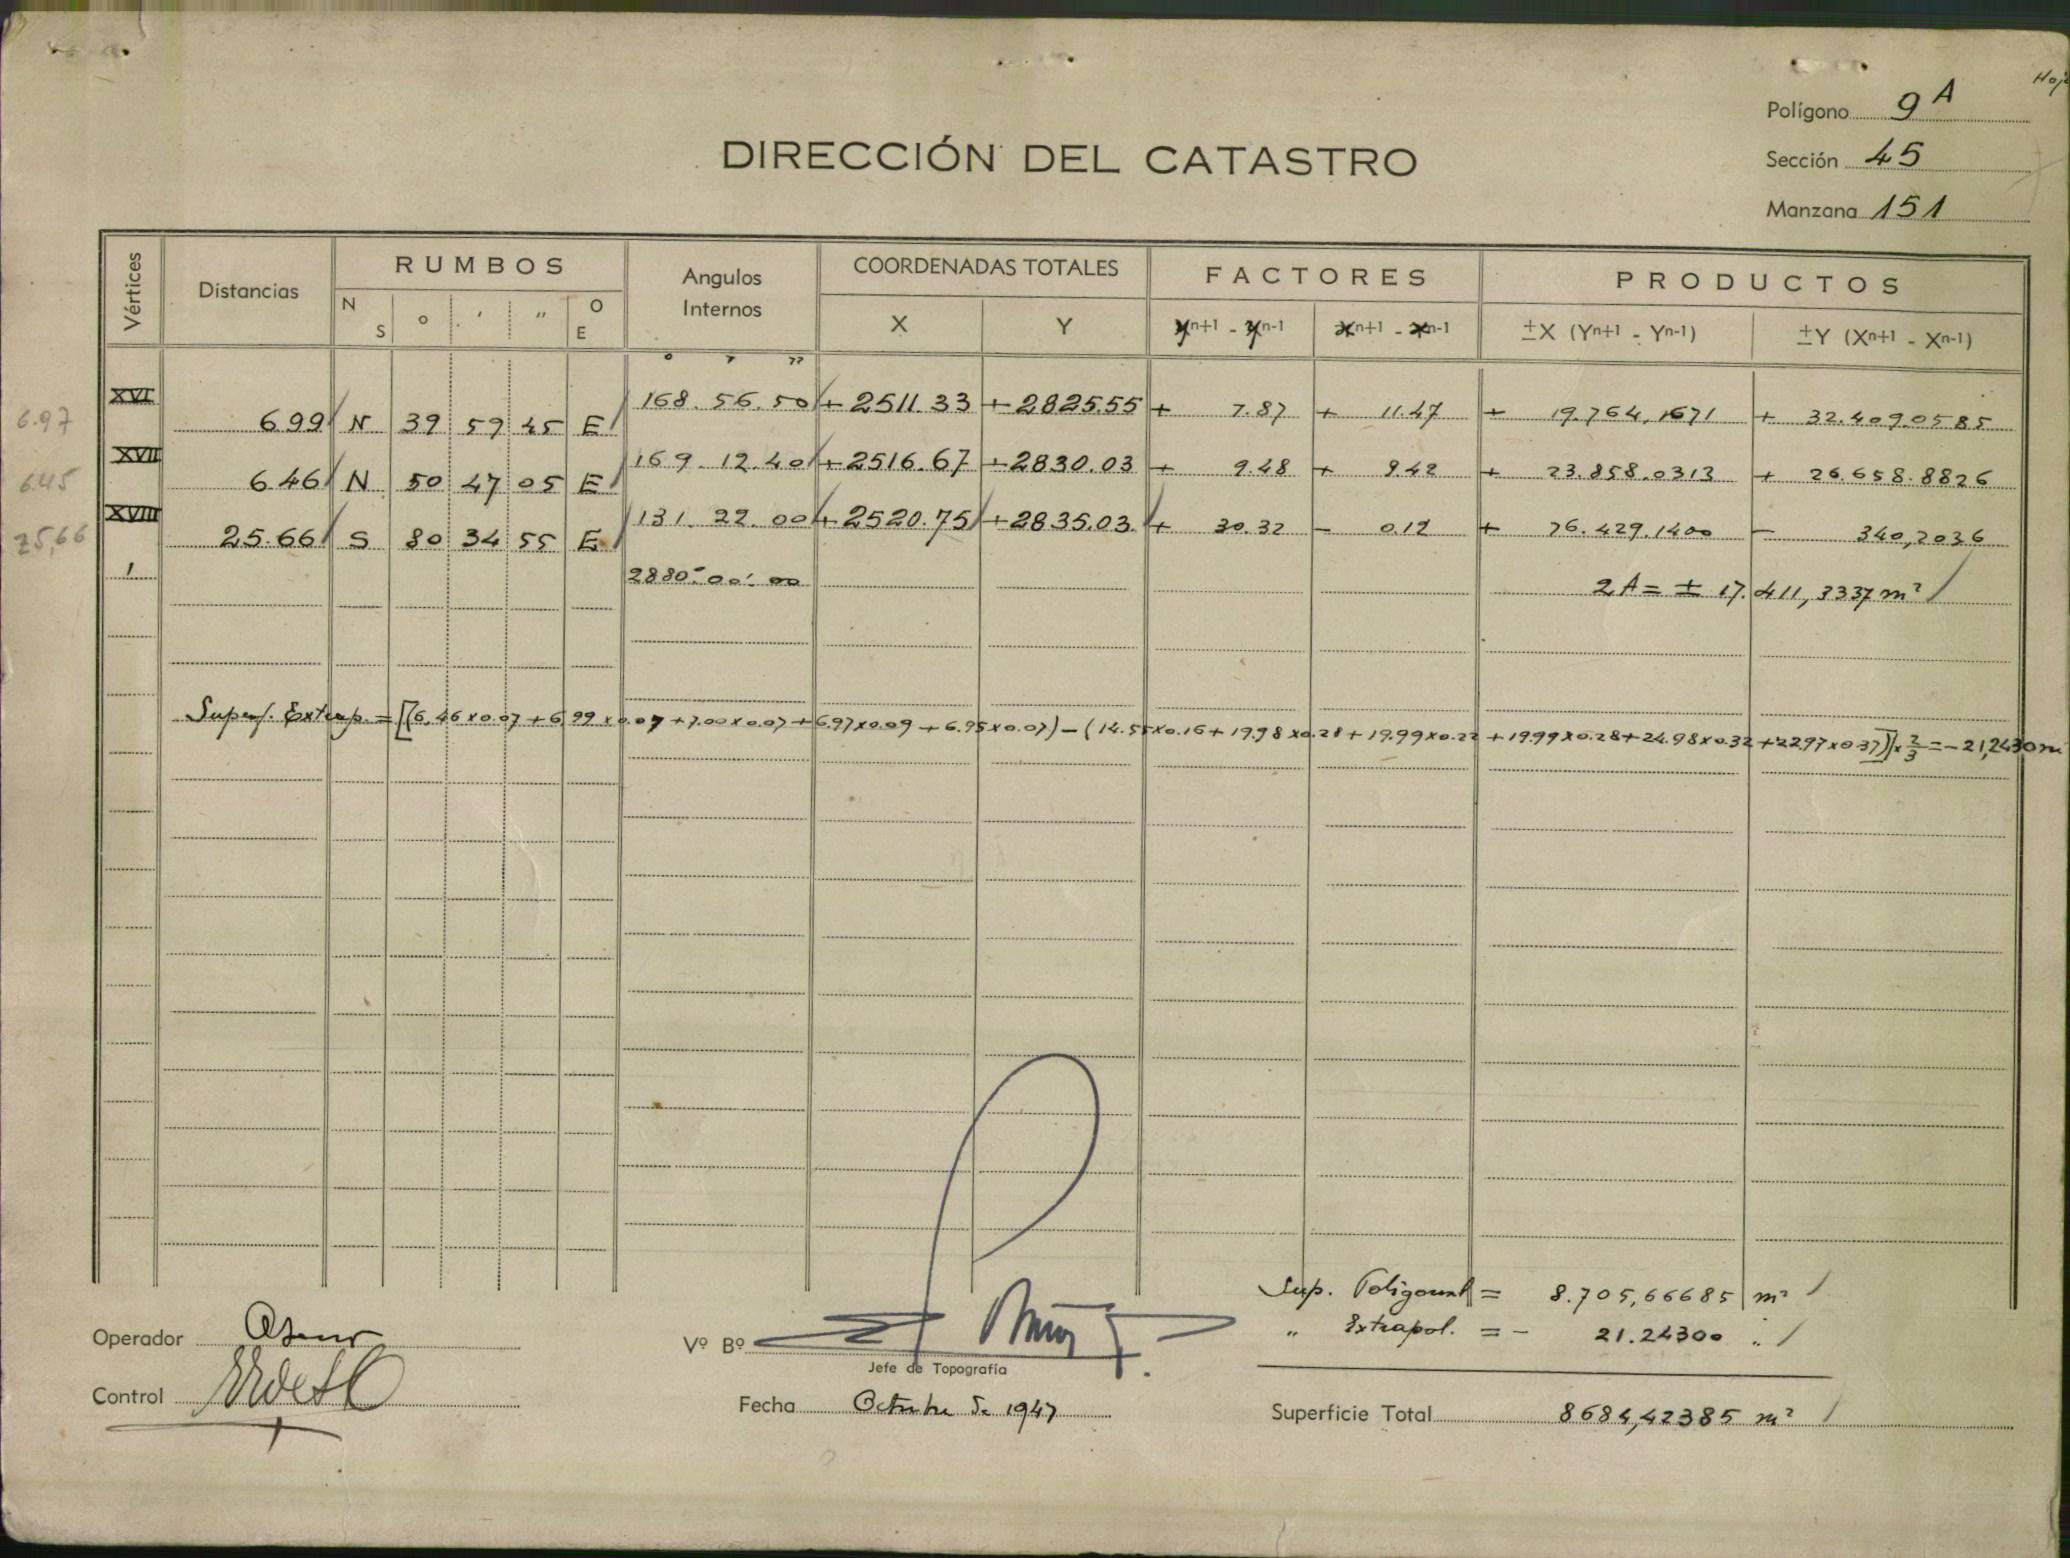 Hoja
Polígono 9 A
Sección 45
Manzana 151
DIRECCIÓN DEL CATASTRO
Vértices Distancias RUMBOS Angulos Internos COORDENADAS TOTALES FACTORES PRODUCTOS
N S ° ' " O E X Y Yn+1 - Yn-1 Xn+1 - Xn-1 ±X (Yn+1 - Yn-1) ±Y (Xn+1 - Xn-1)
° ' "
XVI 168. 56. 50 +2511.33 +2825.55 + 7.87 + 11.47 + 19.764,1671 + 32.409.0585
6.97 6.99 N 39 59 45 E
XVII 169. 12. 40 +2516.67 +2830.03 + 9.48 + 9.42 + 23.858.0313 + 26.658.8826
6.45 6.46 N 50 47 05 E
XVIII 131. 22. 00 +2520.75 +2835.03 + 30.32 - 0.12 + 76.429.1400 - 340,2036
25,66 25.66 S 80 34 55 E
1 2880° 00' 00 2A = ± 17.411,3337 m²
Superf. Extrap. = [(6.46x0.07 + 6.99x0.07 + 7.00x0.07 + 6.97x0.09 + 6.95x0.07) - (14.55x0.16 + 19.98x0.28 + 19.99x0.22 + 19.99x0.28 + 24.98x0.32 + 22.97x0.37)] x 2/3 = - 21,2430 m
Sup. Poligonal = 8.705,66685 m²
" Extrapol. = - 21.24300 "
Operador
Vº Bº
Jefe de Topografía
Control
Fecha Octubre 5 1947
Superficie Total 8684,42385 m²